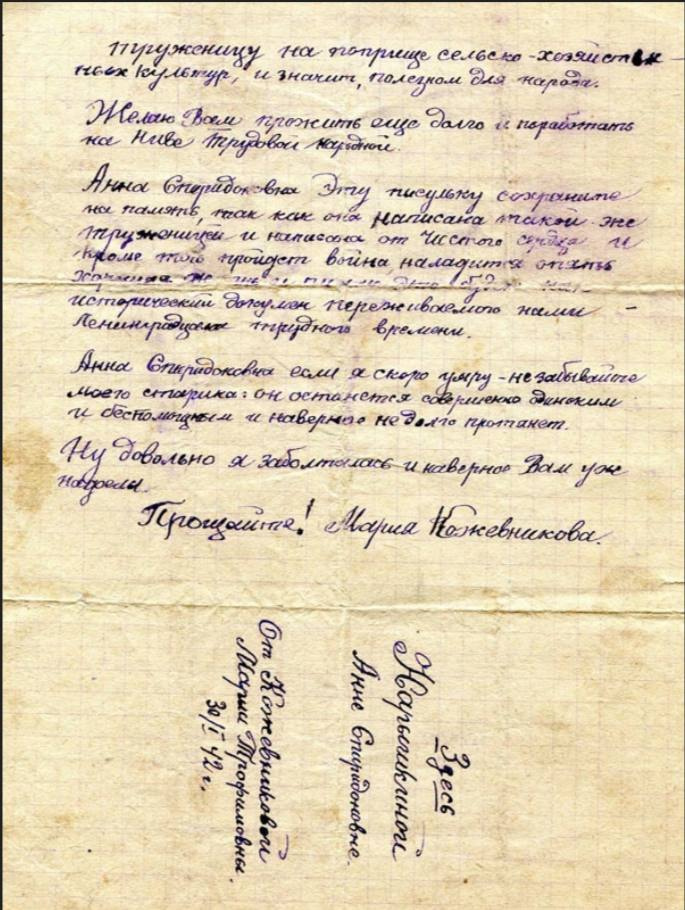 труженицу на поприще сельско-хозяйствен-
ных культур, и значит, полезном для народа.
Желаю Вам прожить еще долго и поработать
на Ниве трудовой народной.
Анна Спиридоновна Эту писульку сохраните
на память, так как она написана такой-же
труженицей и написана от чистого сердца и
кроме того пройдет война, наладится опять
хорошая
исторический докумен переживаемого нами -
Ленинградцами трудного времени.
Анна Спиридоновна если я скоро умру - не забывайте
моего старика: он останется совершенно одиноким
и беспомощным и наверное не долго протянет.
Ну довольно я заболталась и наверное Вам уж
надоела.
Прощайте! Мария Кожевникова.
Здесь
Нарышкиной
Анне Спиридоновне.
От Кожевниковой
Марии Трофимовны.
30/I 42 г.